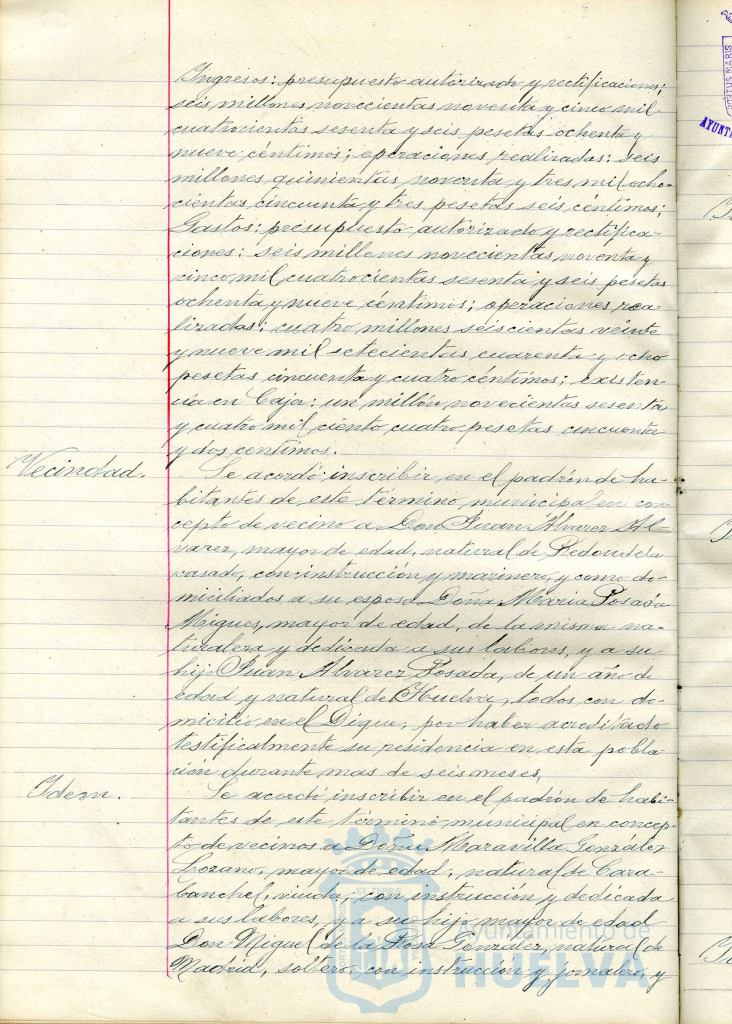 Ingresos: presupuesto autorizado y rectificaciones;
seis millones novecientas noventa y cinco mil
cuatrocientas sesenta y seis pesetas ochenta y
nueve céntimos; operaciones realizadas: seis
millones quinientas noventa y tres mil ocho-
cientas cincuenta y tres pesetas seis céntimos;
Gastos: presupuesto autorizado y rectifica-
ciones: seis millones novecientas noventa y
cinco mil cuatrocientas sesenta y seis pesetas
ochenta y nueve céntimos; operaciones rea-
lizadas: cuatro millones seiscientas veinte
y nueve mil setecientas cuarenta y ocho
pesetas cincuenta y cuatro céntimos; existen-
cia en Caja: un millón novecientas sesenta
y cuatro mil ciento cuatro pesetas cincuenta
y dos centimos.
Vecindad.
Se acordó inscribir en el padrón de ha-
bitantes de este término municipal en con-
cepto de vecino a Don Juan Álvarez Ál-
varez, mayor de edad, natural de Redondela
casado, con instrucción y marinero, y como do-
miciliados a su esposa Doña Maria Posada
Migues, mayor de edad, de la misma na-
turaleza y dedicada a sus labores, y a su
hijo Juan Alvarez Posada, de un año de
edad y natural de Huelva, todos con do-
micilio en el Dique, por haber acreditado
testificalmente su residencia en esta pobla-
ción durante mas de seis meses.
Idem.
Se acordó inscribir en el padrón de habi-
tantes de este término municipal en concep-
to de vecinos a Doña Maravilla González
Lozano, mayor de edad, natural de Cara-
banchel, viuda, con instrucción y dedicada
a sus labores, y a su hijo mayor de edad
Don Miguel de la Rosa González, natural de
Madrid, soltero, con instrucción y jornalero, y
Ayuntamiento de
HUELVA